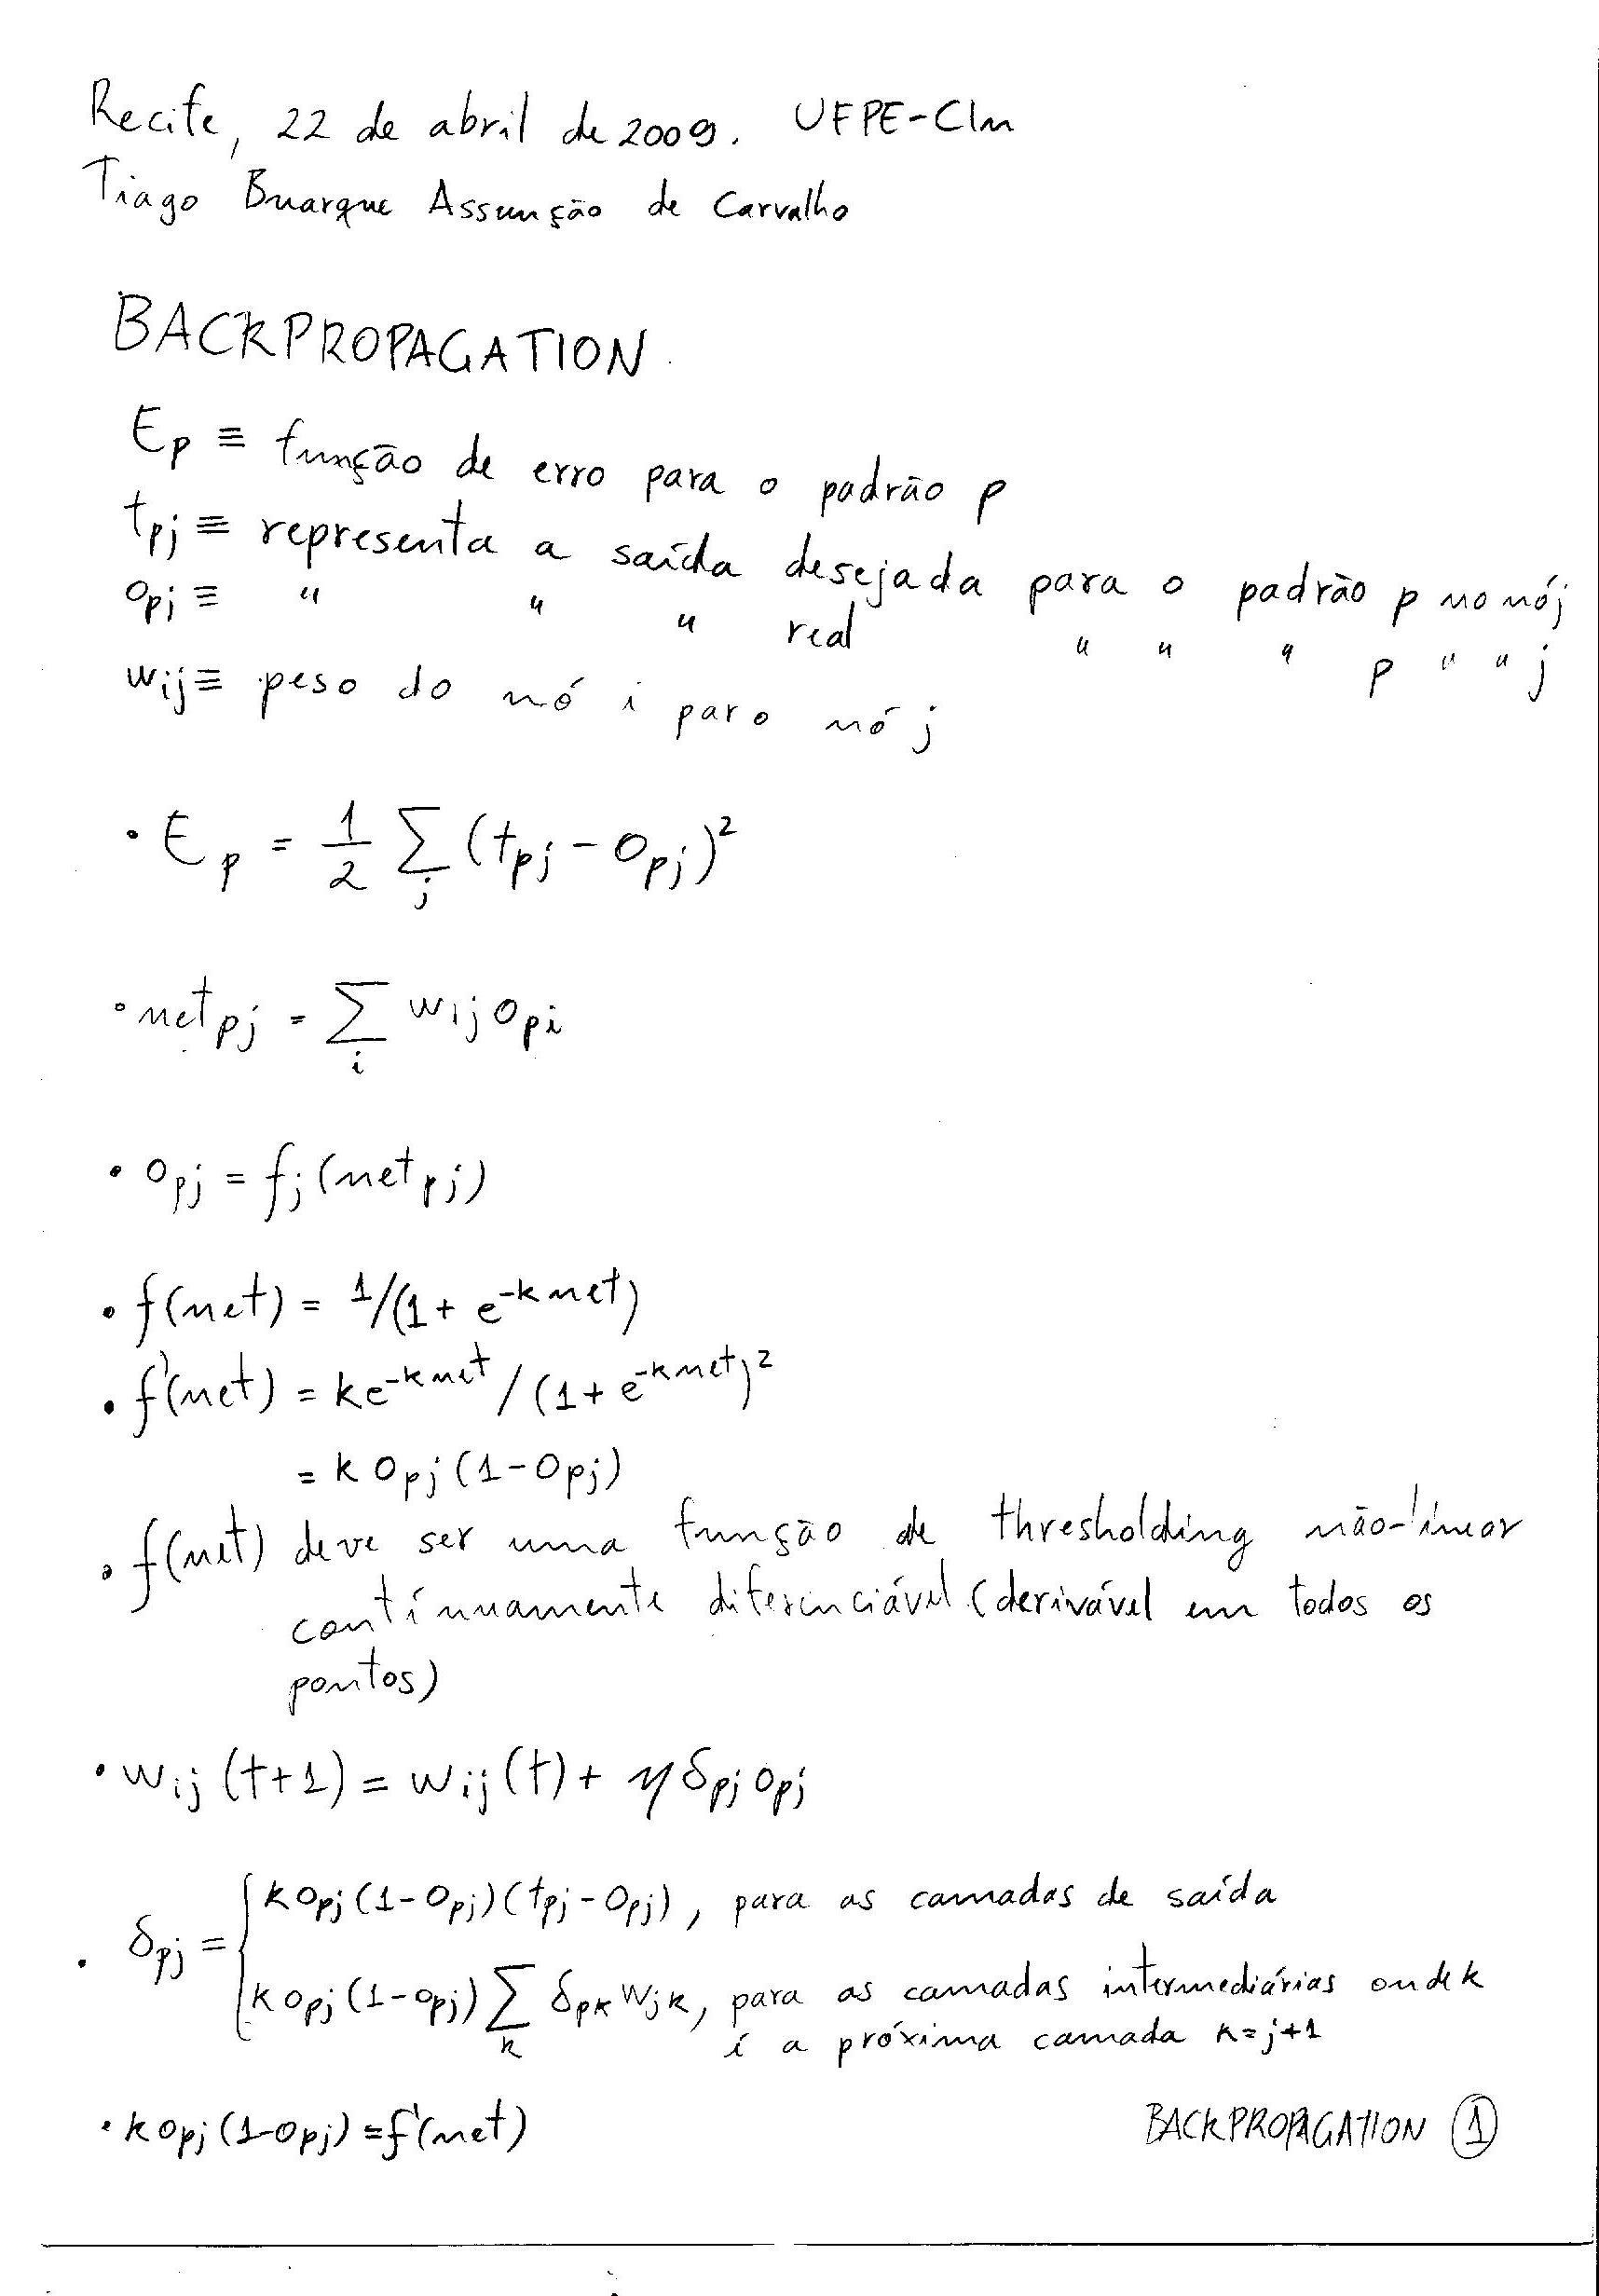 Recife, 22 de abril de 2009. UFPE-CIn
Tiago Buarque Assunção de Carvalho
BACKPROPAGATION
Ep ≡ função de erro para o padrão p
tpj ≡ representa a saída desejada para o padrão p no nó j
opj ≡ " " " real " " " p " " j
wij ≡ peso do nó i par o nó j
• Ep = 1/2 ∑j (tpj - opj)²
• netpj = ∑i wij opi
• opj = fj(netpj)
• f(net) = 1/(1 + e^-k net)
• f'(net) = ke^-k net / (1 + e^-k net)²
= k opj (1 - opj)
• f(net) deve ser uma função de thresholding não-linear
contínuamente diferenciável (derivável em todos os
pontos)
• wij (t+1) = wij (t) + η δpj opj
• δpj = { k opj (1 - opj) (tpj - opj), para as camadas de saída
k opj (1 - opj) ∑k δpk wjk, para as camadas intermediárias onde k
é a próxima camada k = j+1
• k opj (1 - opj) = f'(net)
BACKPROPAGATION 1